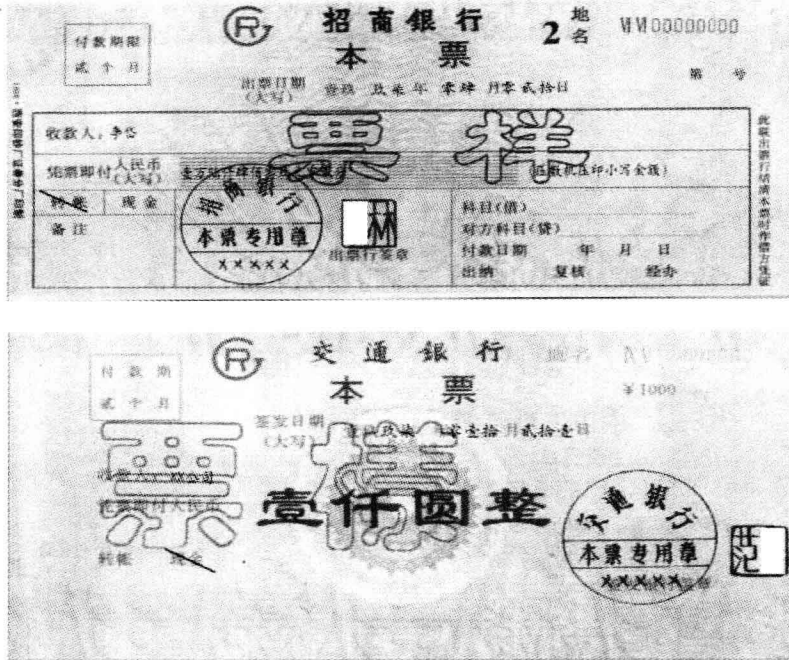 付款期限
贰个月
R
招商銀行
本票
2
地名
00000000
第 号
出票日期
(大写)
壹玖 玖柒年 零肆 月零贰拾日
收款人:李岱
票样
凭票即付
人民币
(大写)
(压数机压印小写金额)
转账
现金
备注
招商银行
本票专用章
×××××
林
出票行签章
科目(借)
对方科目(贷)
付款日期 年 月 日
出纳 复核 经办
此联出票行结清本票时作借方凭证
付款期
贰个月
R
交通銀行
本票
¥1000
签发日期
(大写)
壹玖玖柒年零壹拾月贰拾壹日
票樣
凭票即付人民币
壹仟圆整
转帐
现金
交通银行
本票专用章
×××××